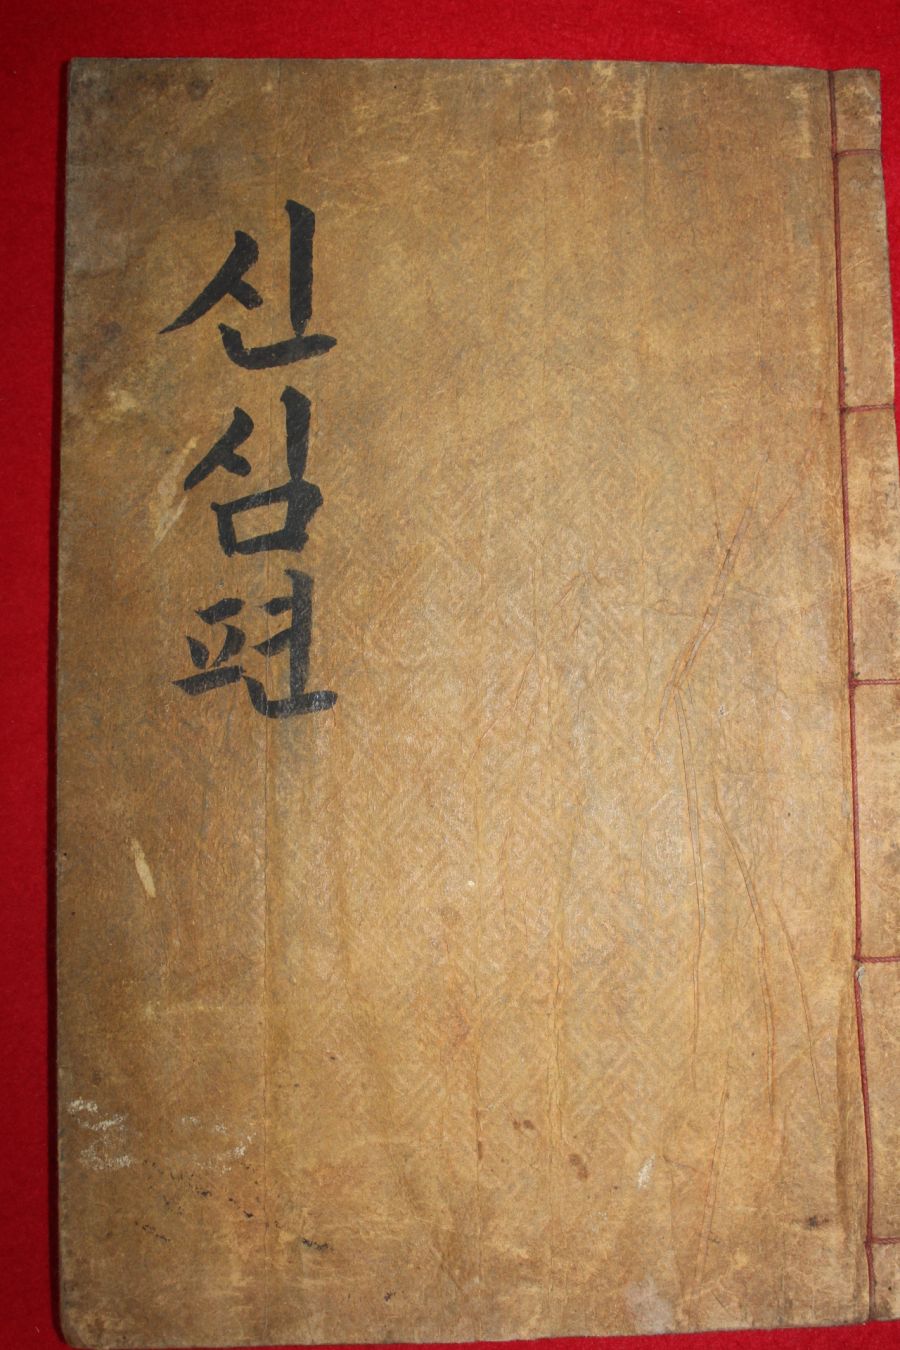 신심편